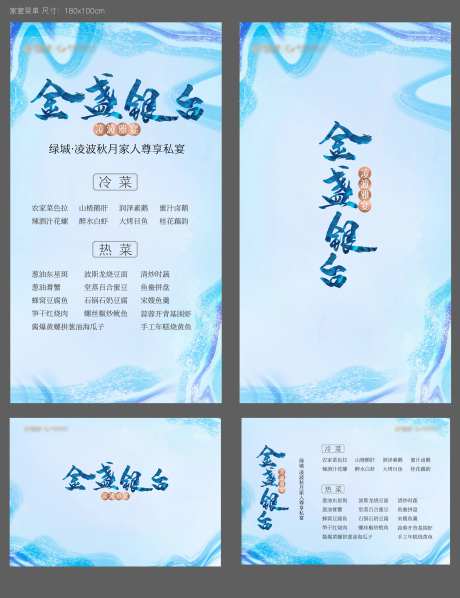 家宴菜单 尺寸：180x100cm
金盏银台
凌波雅宴
绿城·凌波秋月家人尊享私宴
冷菜
农家菜色拉 山楂鹅肝 润泽素鹅 蜜汁卤鹅
辣酒汁花螺 醉水白虾 火烤目鱼 桂花藕韵
热菜
葱油东星斑 波斯龙烧豆面 清炒时蔬
葱油膏蟹 堂蒸百合蜜豆 鱼鲞拼盘
蜂窝豆腐鱼 石锅石奶豆腐 宋嫂鱼羹
笋干红烧肉 螺丝椒炒鱿鱼 蒜蓉开背基围虾
酱爆黄螺拼葱油海瓜子 手工年糕烧黄鱼
金盏银台
凌波雅宴
金盏银台
凌波雅宴
金盏银台
凌波雅宴
绿城·凌波秋月家人尊享私宴
冷菜
农家菜色拉 山楂鹅肝 润泽素鹅 蜜汁卤鹅
辣酒汁花螺 醉水白虾 火烤目鱼 桂花藕韵
热菜
葱油东星斑 波斯龙烧豆面 清炒时蔬
葱油膏蟹 堂蒸百合蜜豆 鱼鲞拼盘
蜂窝豆腐鱼 石锅石奶豆腐 宋嫂鱼羹
笋干红烧肉 螺丝椒炒鱿鱼 蒜蓉开背基围虾
酱爆黄螺拼葱油海瓜子 手工年糕烧黄鱼